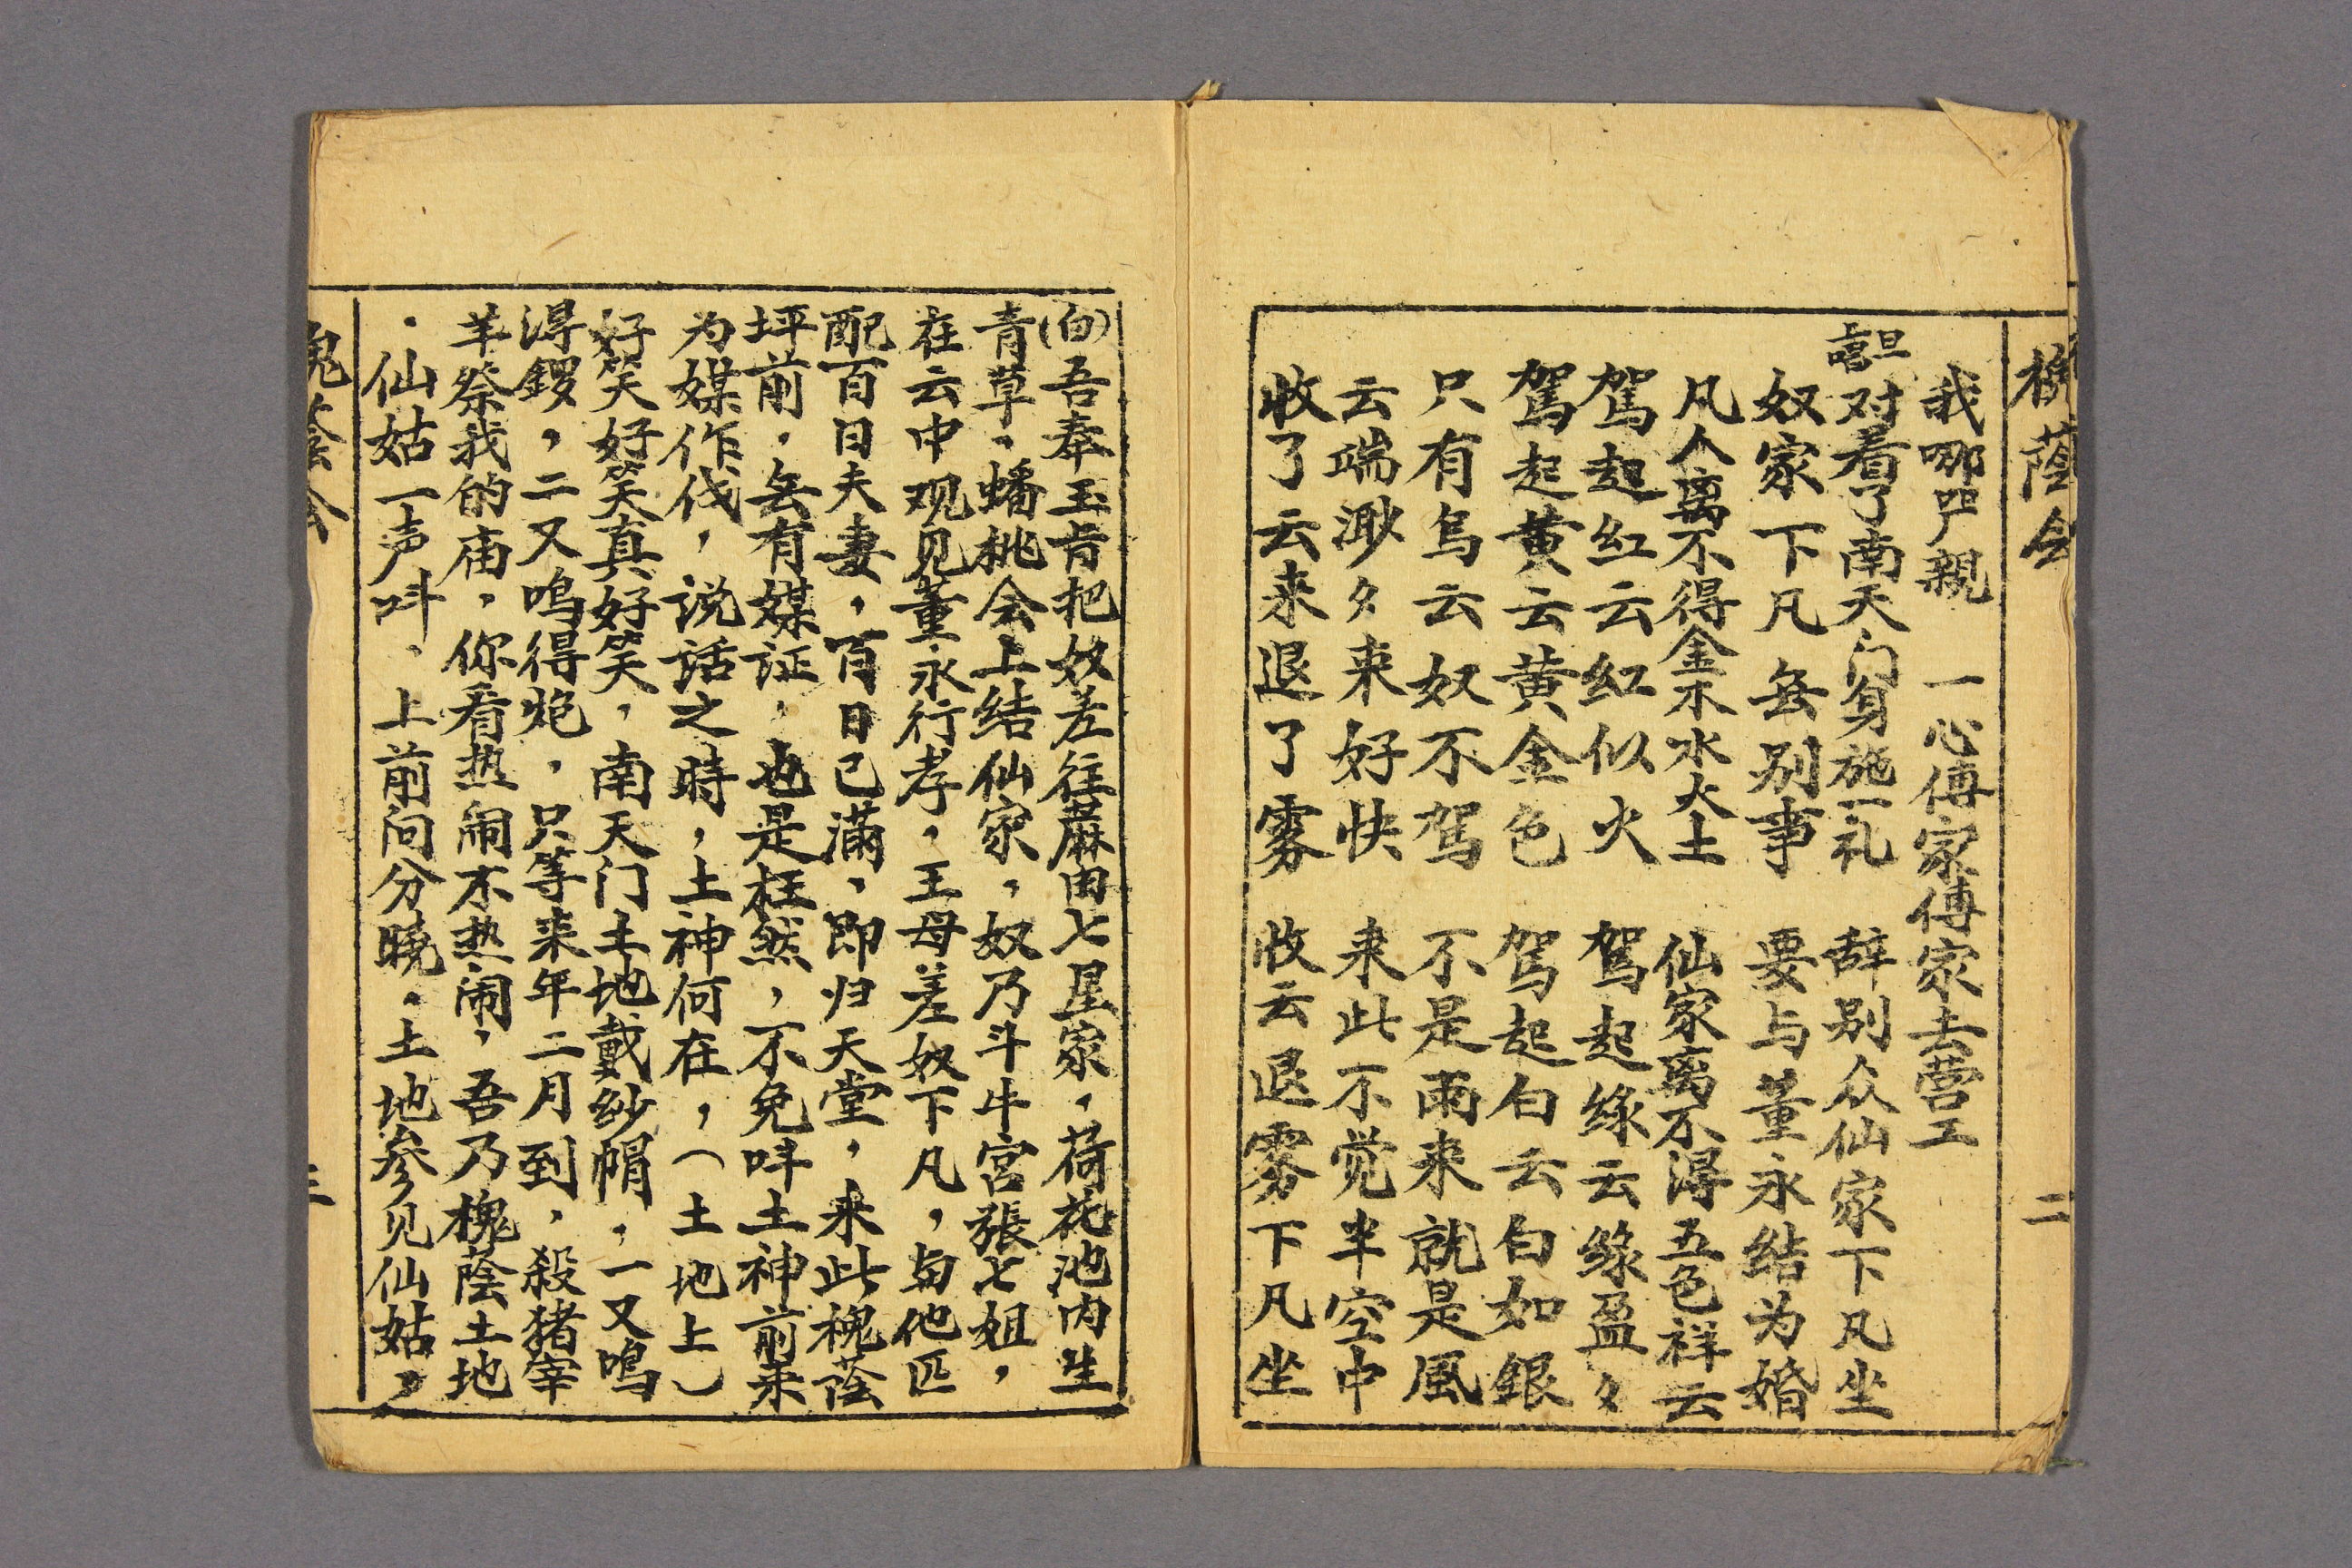 槐蔭会 二
我哪尸親 一心傅家傅家去营工
旦唱 对看了南天门身施一礼 辞别众仙家下凡坐
奴家下凡無别事 要与董永结为婚
凡人离不得金木水火土 仙家离不淂五色祥云
驾起红云红似火 驾起绿云绿盈々
驾起黄云黄金色 驾起白云白如銀
只有烏云奴不驾 不是雨来就是風
云端渺々来好快 来此不觉半空中
收了云来退了雾 收云退雾下凡坐
(白)吾奉玉旨把奴差往蔴田七星家，荷花池内生
青草，蟠桃会上结仙家，奴乃斗牛宫張七姐，
在云中观见董永行孝，王母差奴下凡，与他匹
配百日夫妻，百日已满，即归天堂，来此槐蔭
坪前，無有媒证，也是枉然，不免呌土神前来
为媒作伐，说话之時，土神何在，（土地上）
好笑好笑真好笑，南天门土地戴纱帽，一又鳴
淂鑼，二又鳴得炮，只等来年二月到，殺猪宰
羊祭我的庙，你看热闹不热闹，吾乃槐蔭土地
．仙姑一声呌、上前问分晓．土地参见仙姑，
槐蔭会 三